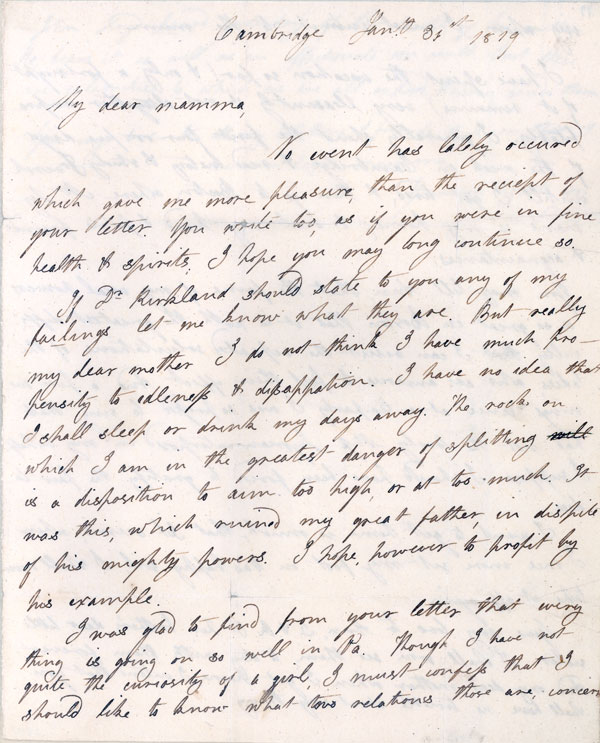 Cambridge Jan.y 31st 1819
My dear mamma,
No event has lately occured
which gave me more pleasure, than the reciept of
your letter. You write too, as if you were in fine
health & spirits. I hope you may long continue so.
If Dr Kirkland should state to you any of my
failings let me know what they are. But really
my dear mother I do not think I have much pro-
pensity to idleness & dissappation. I have no idea that
I shall sleep or drink my days away. The rock on
which I am in the greatest danger of splitting
is a disposition to aim too high, or at too much. It
was this, which ruined my great father in dispite
of his mighty powers. I hope, however to profit by
his example.
I was glad to find from your letter that every
thing is going on so well in Pa. Though I have not
quite the curiosity of a girl, I must confess that I
should like to know what two relations those are, concern